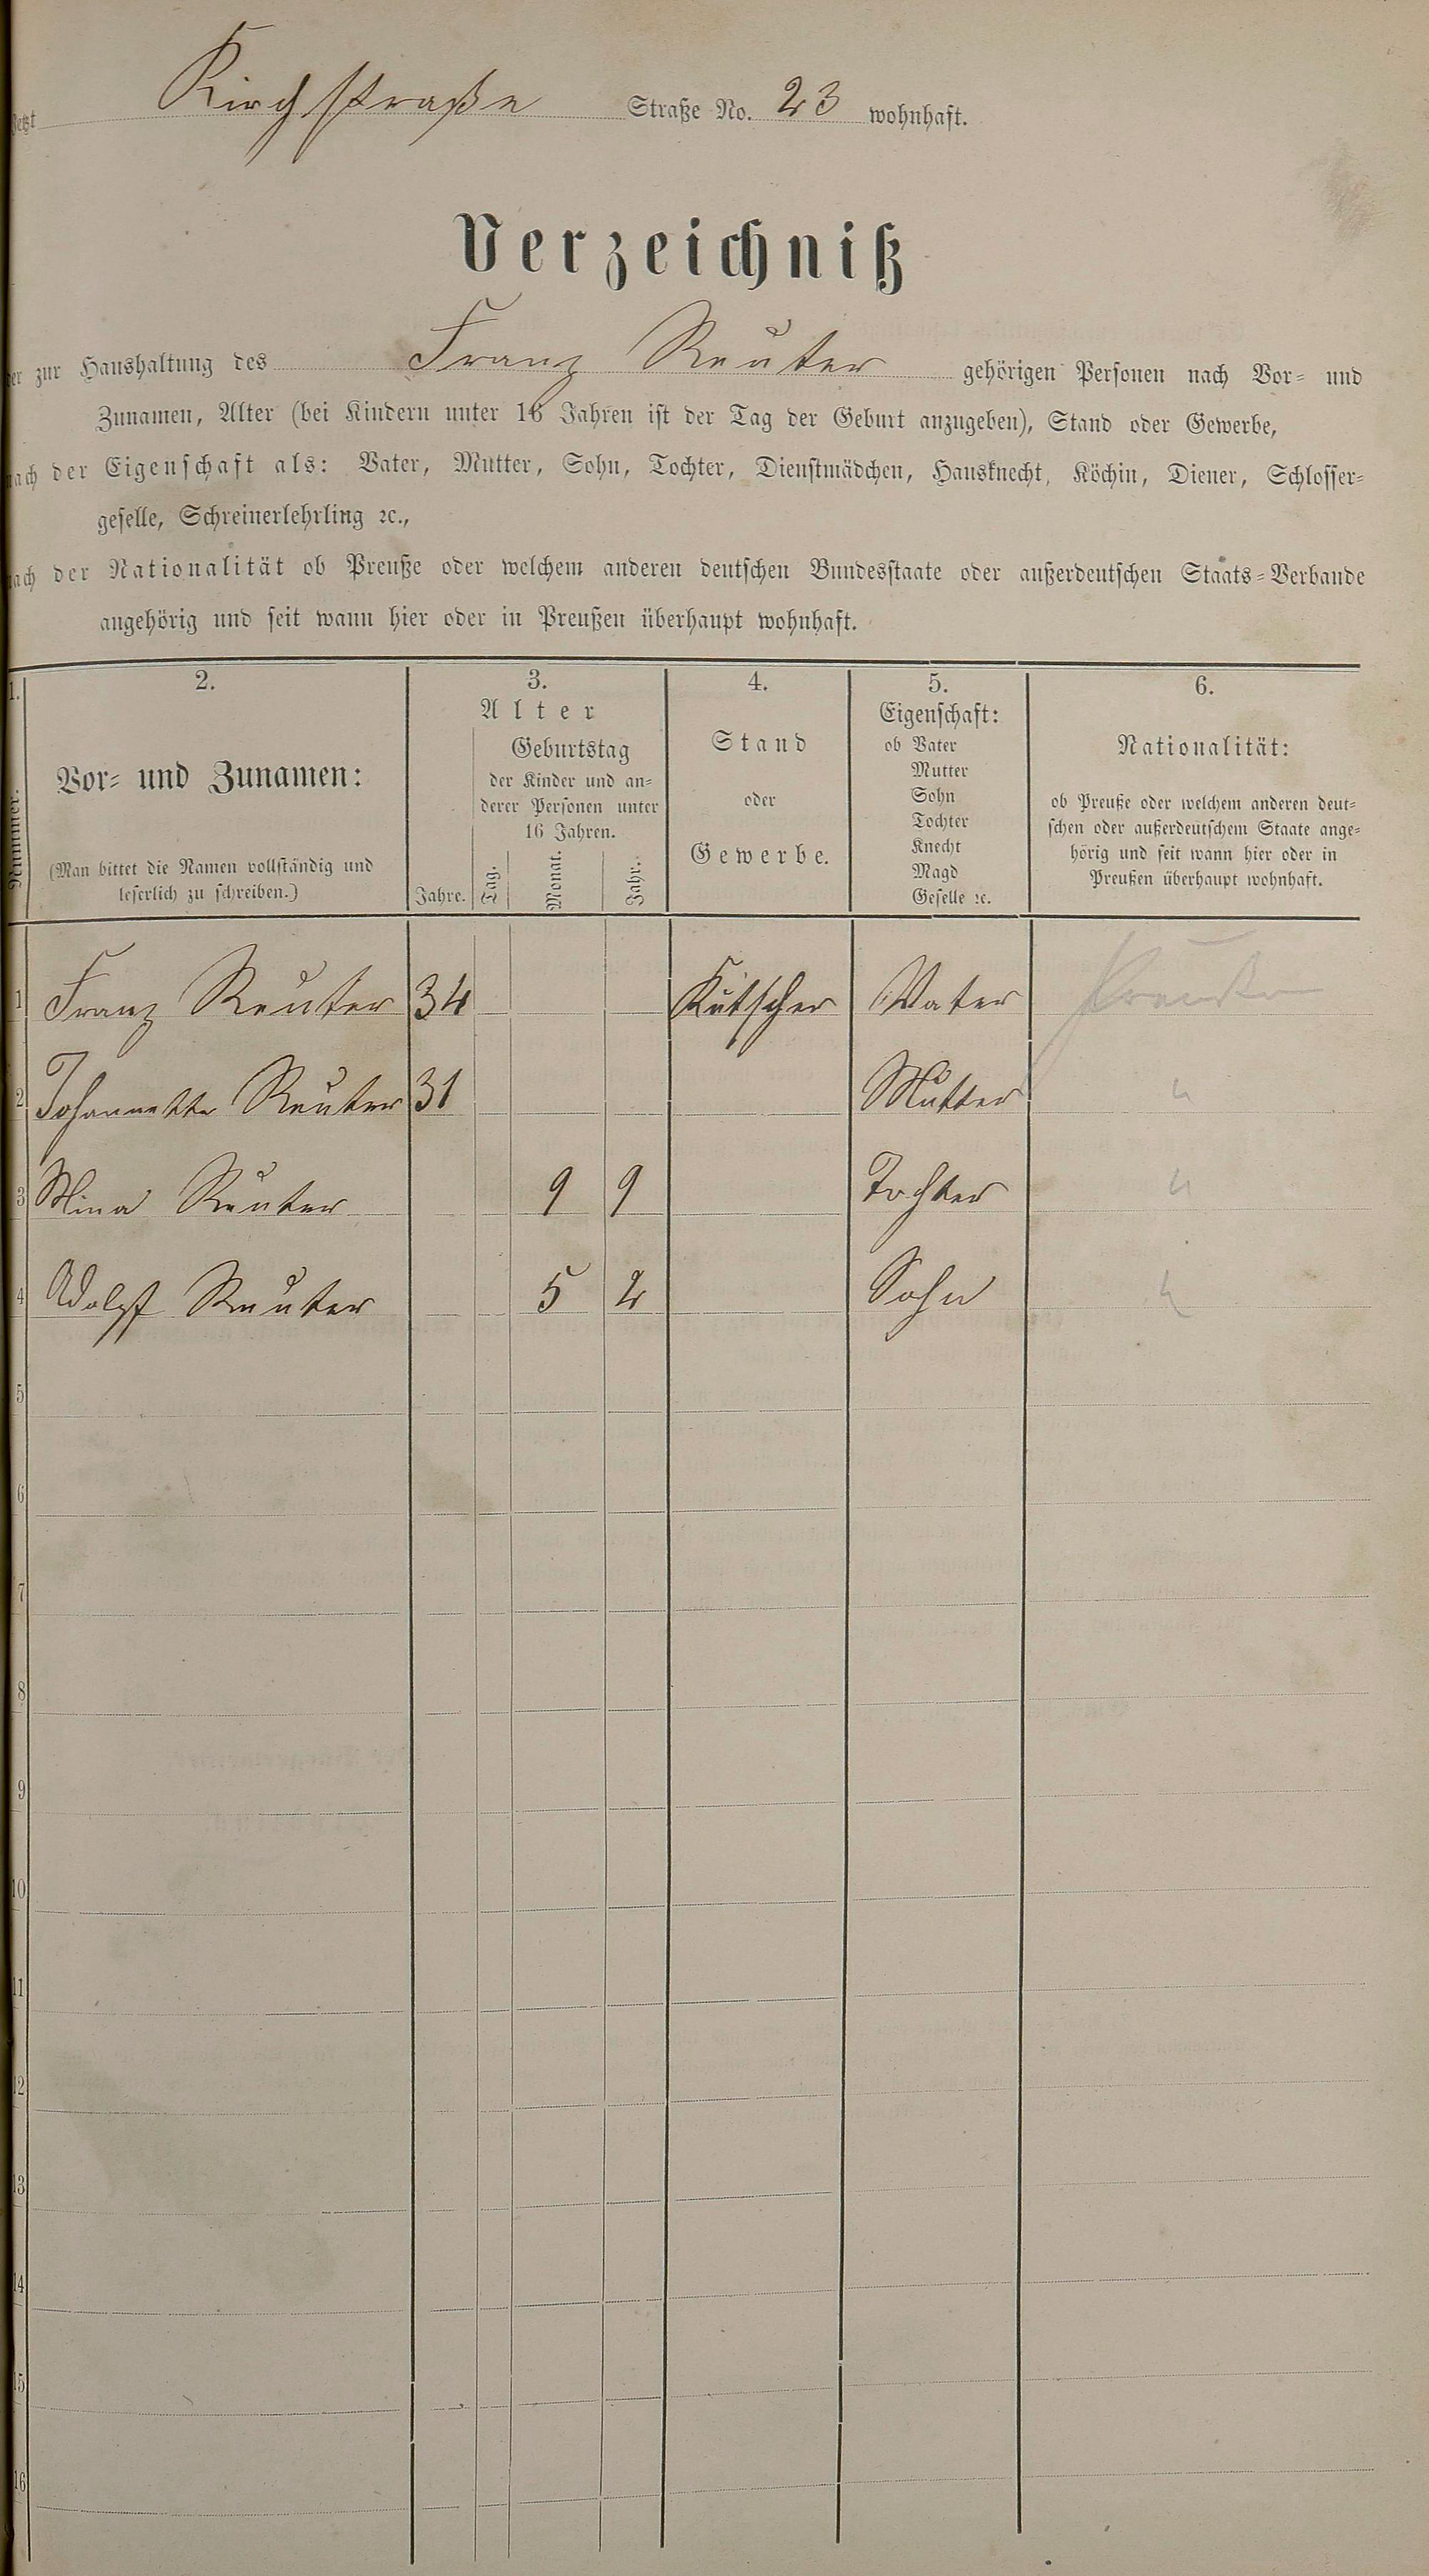 Jetzt Kirchstraße Straße No. 23 wohnhaft.
Verzeichniß
der zur Haushaltung des Franz Reuter gehörigen Personen nach Vor= und
Zunamen, Alter (bei Kindern unter 16 Jahren ist der Tag der Geburt anzugeben), Stand oder Gewerbe,
nach der Eigenschaft als: Vater, Mutter, Sohn, Tochter, Dienstmädchen, Hausknecht, Köchin, Diener, Schlosser=
geselle, Schreinerlehrling ꝛc.,
nach der Nationalität ob Preuße oder welchem anderen deutschen Bundesstaate oder außerdeutschen Staats=Verbande
angehörig und seit wann hier oder in Preußen überhaupt wohnhaft.
1. 2. 3. 4. 5. 6.
Nummer.
Vor= und Zunamen:
(Man bittet die Namen vollständig und
leserlich zu schreiben.)
Alter
Jahre.
Geburtstag
der Kinder und an=
derer Personen unter
16 Jahren.
Tag. Monat. Jahr.
Stand
oder
Gewerbe.
Eigenschaft:
ob Vater
Mutter
Sohn
Tochter
Knecht
Magd
Geselle ꝛc.
Nationalität:
ob Preuße oder welchem anderen deut=
schen oder außerdeutschem Staate ange=
hörig und seit wann hier oder in
Preußen überhaupt wohnhaft.
1 Franz Reuter 34 Kutscher Vater Preußen
2 Johannette Reuter 31 Mutter "
3 Mina Reuter 9 9 Tochter "
4 Adolf Reuter 5 2 Sohn "
5
6
7
8
9
10
11
12
13
14
15
16